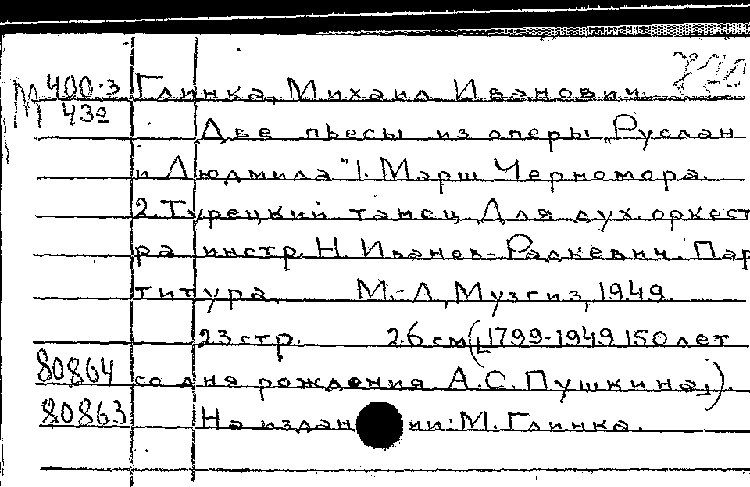 М 400-3 Глинка, Михаил Иванович.
43г
Две пьесы из оперы „Руслан
и Людмила" 1. Марш Черномора.
2. Турецкий танец. Для дух. оркест
ра инстр. Н. Иванов-Радкевич. Пар
титура. М.-Л., Музгиз, 1949.
23 стр. 26 см ([1799-1949 150 лет
80864 со дня рождения А.С. Пушкина]).
80863 На издании: М. Глинка.